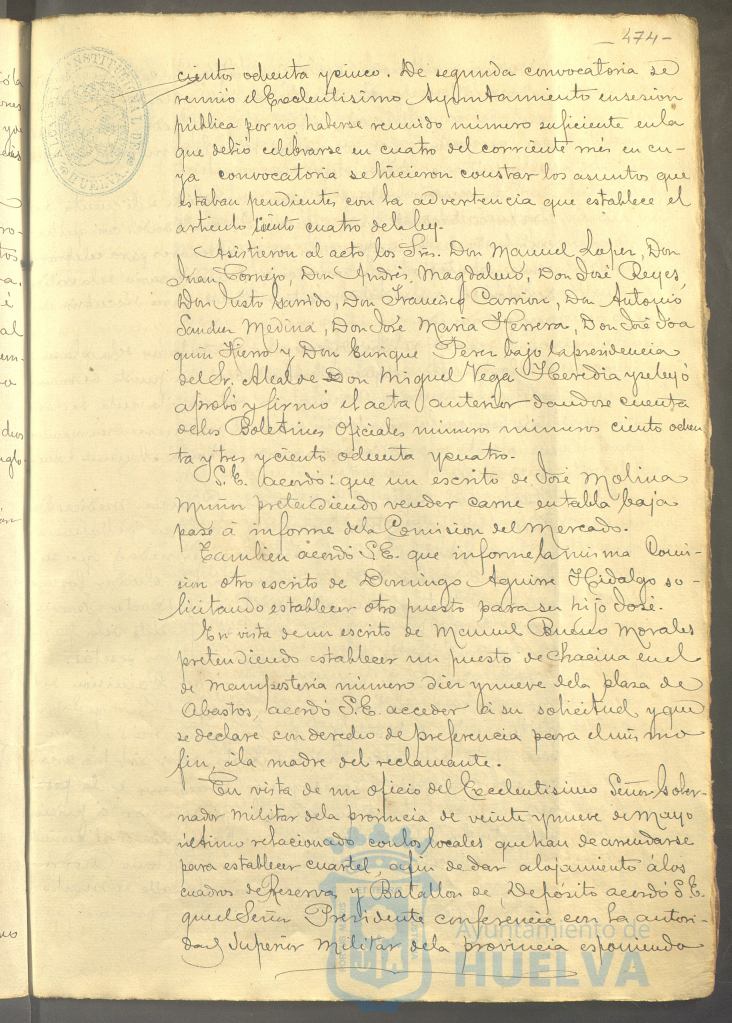 -474-
cientos ochenta y cinco. De segunda convocatoria se
reunió el Excelentisimo Ayuntamiento en sesion
pública por no haberse reunido número suficiente en la
que debió celebrarse en cuatro del corriente mes en cu-
ya convocatoria se hicieron constar los asuntos que
estaban pendientes con la advertencia que establece el
articulo ciento cuatro de la ley.
Asistieron al acto los Sres. Don Manuel Lopez, Don
Juan Cornejo, Don Andrés Magdaleno, Don José Reyes,
Don Justo Garrido, Don Francisco Carrion, Don Antonio
Sanchez Medina, Don José Maria Herrera, Don José Joa
quin Hierro y Don Enrique Perez bajo la presidencia
del Sr. Alcalde Don Miguel Vega Heredia y se leyó
aprobó y firmó el acta anterior dandose cuenta
de los Boletines oficiales números números ciento ochen
ta y tres y ciento ochenta y cuatro.
S.E. acordó: que un escrito de José Molina
Muñoz pretendiendo vender carne en tabla baja
pase á informe de la Comision del Mercado.
Tambien acordó S.E. que informe la misma Comi-
sion otro escrito de Domingo Aguirre Hidalgo so-
licitando establecer otro puesto para su hijo José.
En vista de un escrito de Manuel Bueno Morales
pretendiendo establecer un puesto de chacina en el
de mamposteria número diez y nueve de la plaza de
Abastos, acordó S.E. acceder á su solicitud y que
se declare con derecho de preferencia para el mismo
fin, á la madre del reclamante.
En vista de un oficio del Excelentisimo Señor Gober-
nador Militar de la provincia de veinte y nueve de Mayo
último relacionado con los locales que han de arrendarse
para establecer cuartel, a fin de dar alojamiento á los
cuadros de Reserva y Batallon de Depósito acordó S.E.
que el Señor Presidente conferencie con la autori-
dad Superior Militar de la provincia esponiendo
Ayuntamiento de
HUELVA